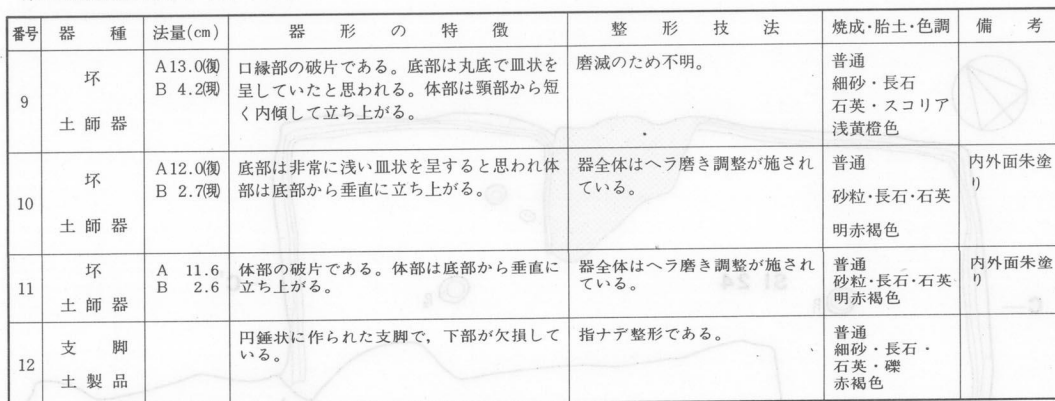 番号 器種 法量(cm) 器形の特徴 整形技法 焼成・胎土・色調 備考
9
坏
土師器
A13.0(復)
B 4.2(現)
口縁部の破片である。底部は丸底で皿状を
呈していたと思われる。体部は頸部から短
く内傾して立ち上がる。
磨滅のため不明。
普通
細砂・長石
石英・スコリア
浅黄橙色
10
坏
土師器
A12.0(復)
B 2.7(現)
底部は非常に浅い皿状を呈すると思われ体
部は底部から垂直に立ち上がる。
器全体はヘラ磨き調整が施され
ている。
普通
砂粒・長石・石英
明赤褐色
内外面朱塗
り
11
坏
土師器
A 11.6
B 2.6
体部の破片である。体部は底部から垂直に
立ち上がる。
器全体はヘラ磨き調整が施され
ている。
普通
砂粒・長石・石英
明赤褐色
内外面朱塗
り
12
支脚
土製品
円錐状に作られた支脚で，下部が欠損して
いる。
指ナデ整形である。
普通
細砂・長石・
石英・礫
赤褐色